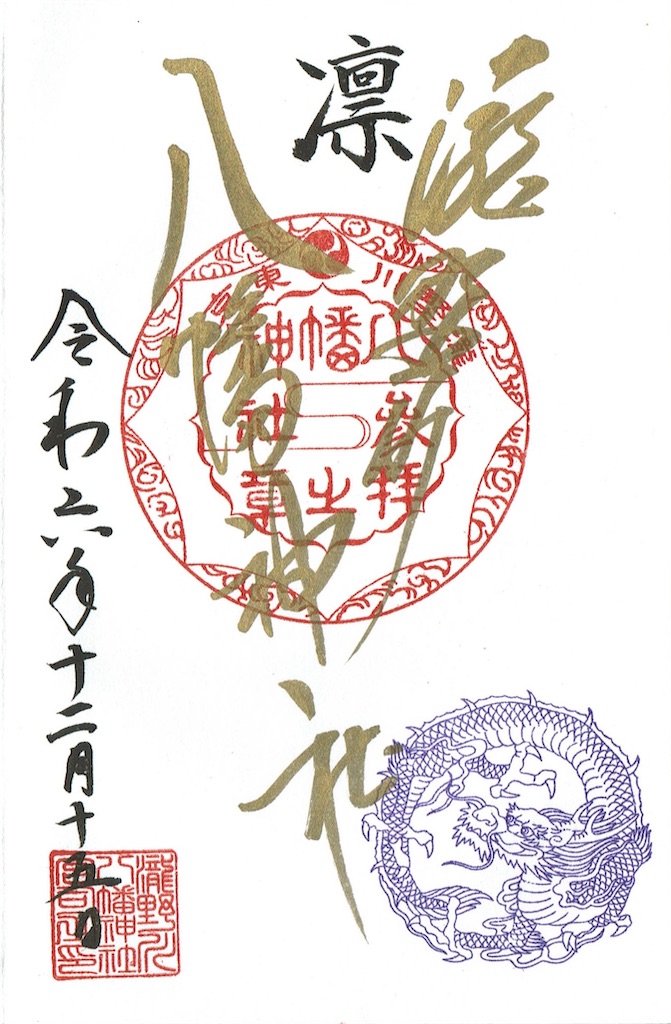 凛
滝野川
八幡神社
東京
瀧野川
八幡神社
參拝之章
令和六年十二月十五日
瀧野川
八幡神社
宮司之印